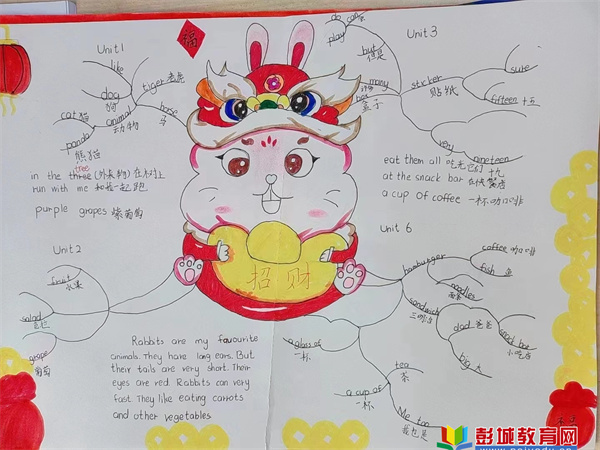 福
Unit 1
like
dog
狗
tiger 老虎
cat 猫
animal
动物
horse
马
panda
熊猫
tree
in the three (外来物) 在树上
run with me 和我一起跑
purple grapes 紫葡萄
Unit 2
fruit
水果
salad
grape
葡萄
招财
Rabbits are my favourite
animals. They have long ears. But
their tails are very short. Their
eyes are red. Rabbits can very
fast. They like eating carrots
and other vegetables
Unit 3
do
can
play
but
但是
many
许多
box
盒子
sticker
贴纸
sure
fifteen 十五
very
nineteen
十九
eat them all 吃光它们
at the snack bar 在快餐店
a cup of coffee 一杯咖啡
Unit 6
hamburger
coffee 咖啡
fish 鱼
noodles
面条
sandwich
三明治
dad 爸爸
snack bar
小吃店
big 大
a glass of
一杯
tea
茶
a cup of
一杯
Me too
我也是
彭城教育网